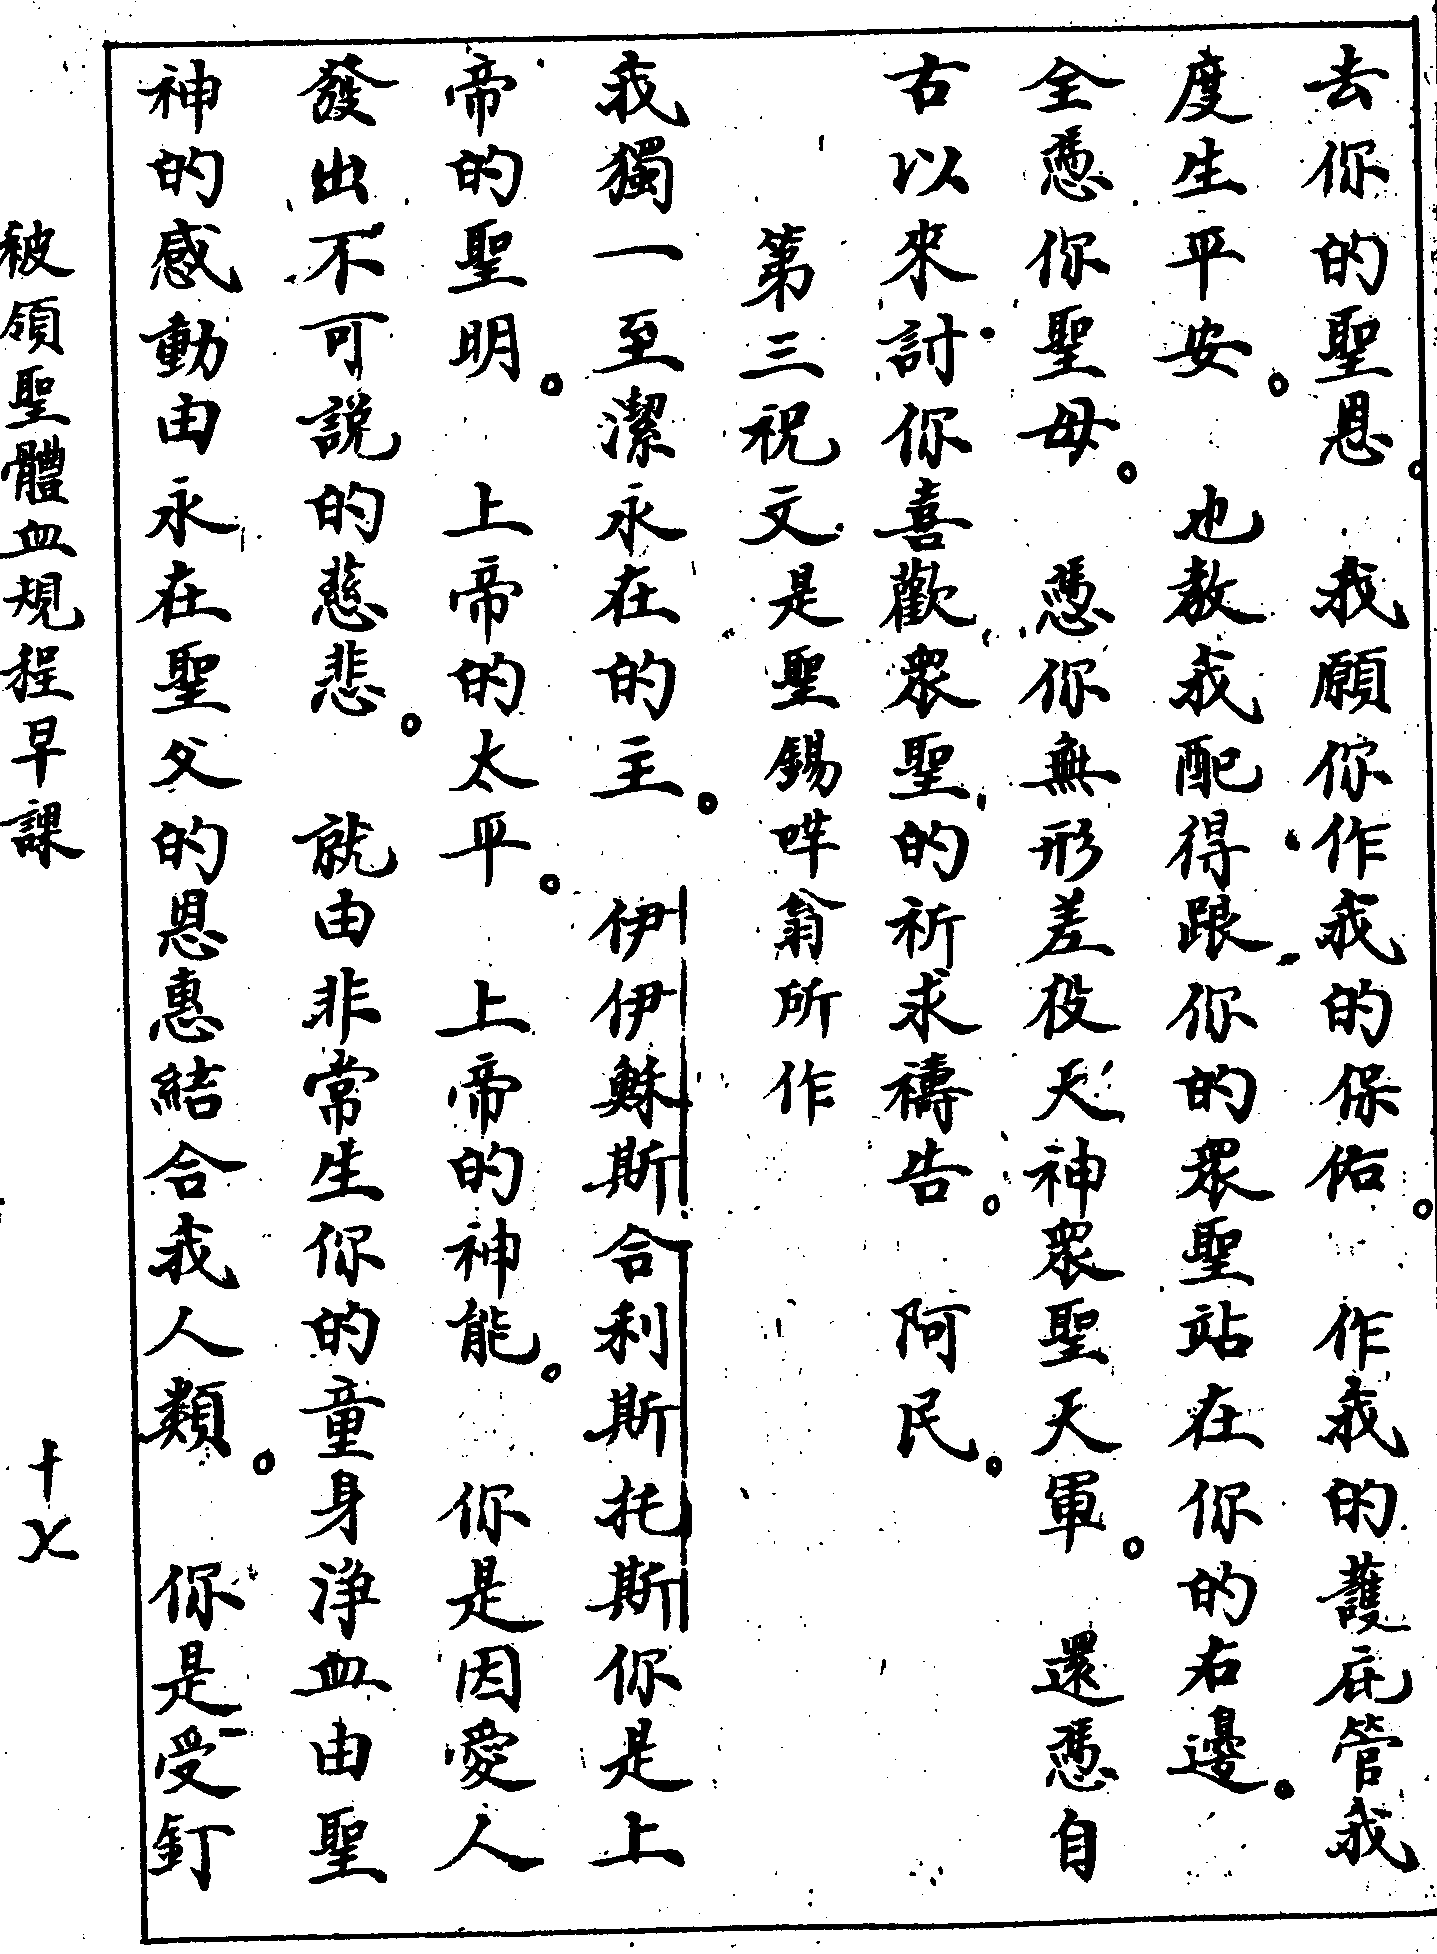 去你的聖恩。 我願你作我的保佑。 作我的護庇管我
度生平安。 也教我配得跟你的眾聖站在你的右邊。
全憑你聖母。 憑你無形差役天神眾聖天軍。 還憑自
右以來討你喜歡眾聖的祈求禱告。 阿民。
第三祝文是聖錫哶翁所作
我獨一至潔永在的主。 伊伊穌斯合利斯托斯你是上
帝的聖明。 上帝的太平。 上帝的神能。 你是因愛人
發出不可説的慈悲。 就由非常生你的童身淨血由聖
神的感動由永在聖父的恩惠結合我人類。 你是受釘
被領聖體血規程早課
十七